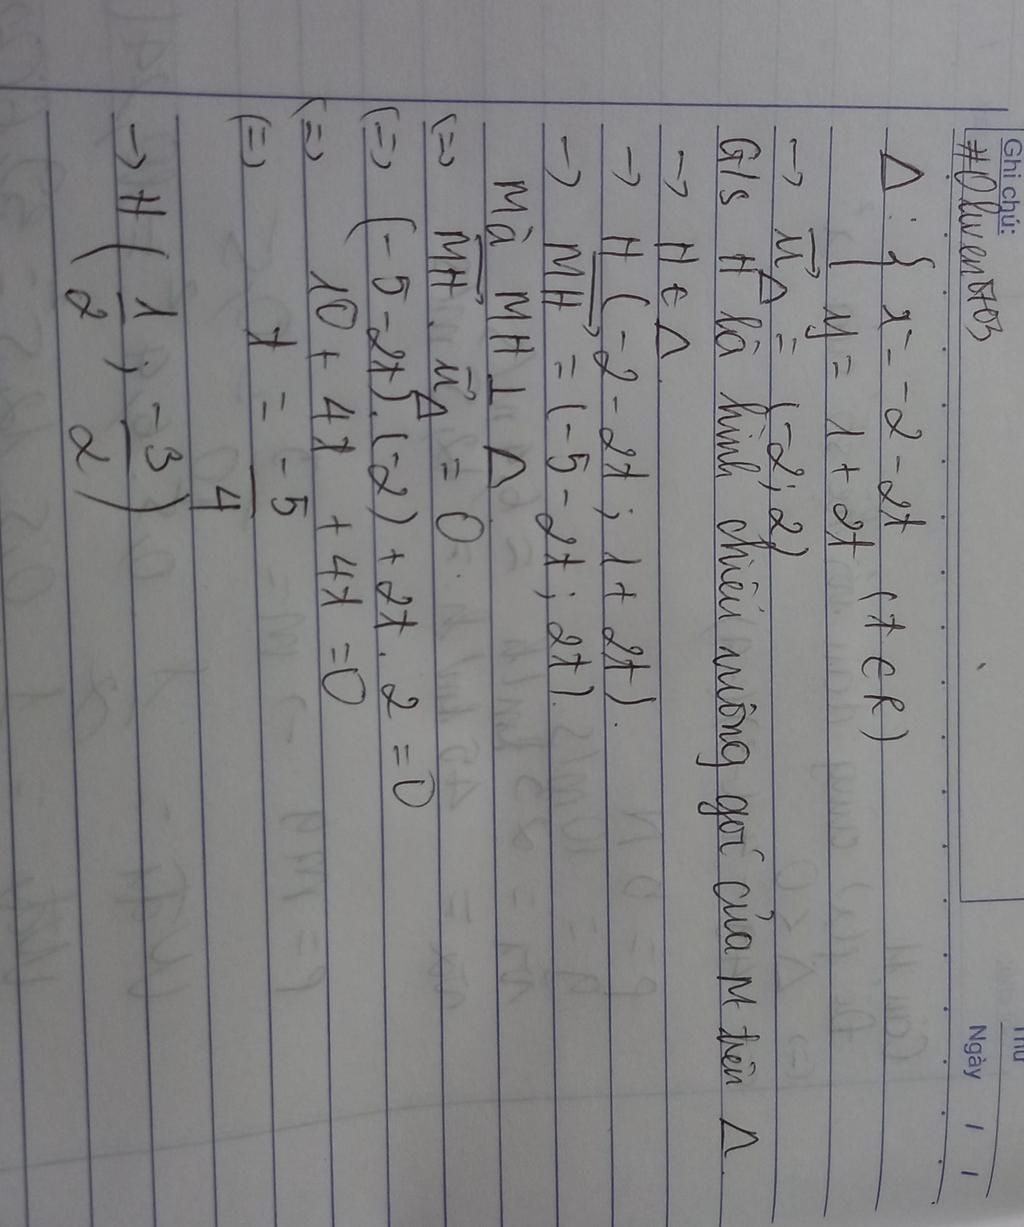 Ghi chú:
#OliverBA03
Thứ
Ngày / /
Δ: { x = -2 - 2t (t ∈ R)
y = 1 + 2t
→ u⃗Δ = (-2; 2)
G/s H là hình chiếu vuông gói của M trên Δ.
→ H ∈ Δ
→ H (-2 - 2t; 1 + 2t).
→ MH⃗ = (-5 - 2t; 2t).
Mà MH ⊥ Δ
(=) MH⃗ . u⃗Δ = 0.
(=) (-5 - 2t).(-2) + 2t . 2 = 0
(=) 10 + 4t + 4t = 0
(=) t = -5/4
→ H (1/2; -3/2)